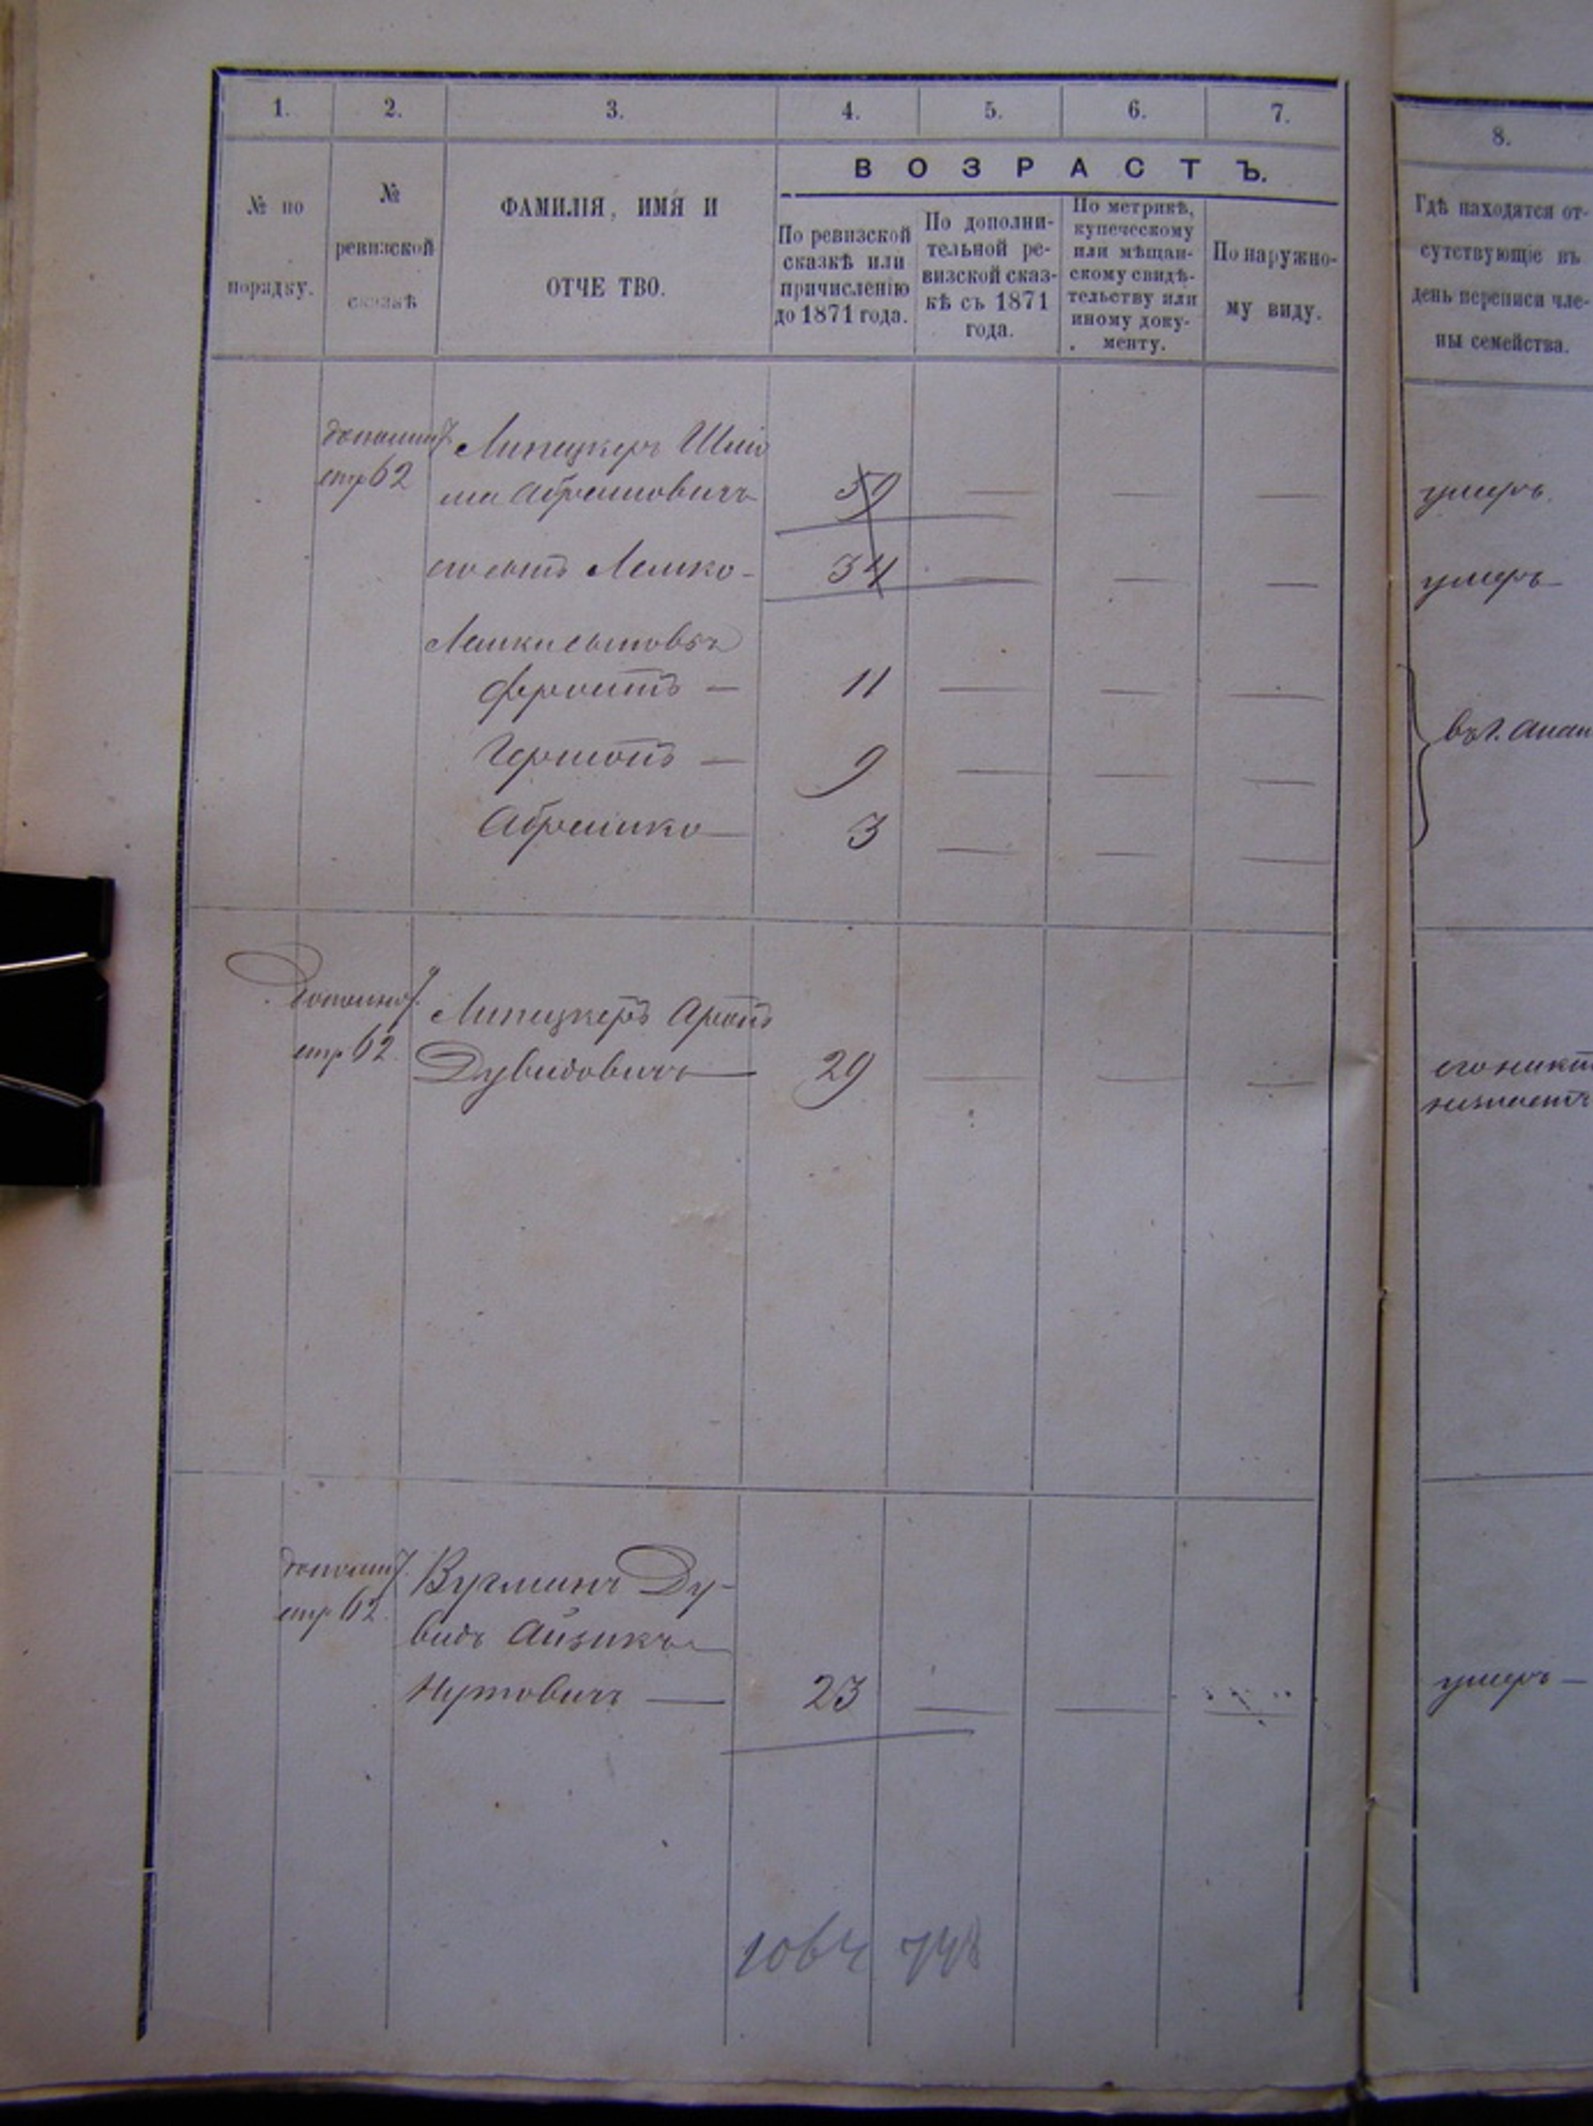 1.
2.
3.
4.
5.
6.
7.
8.
№ по
порядку.
№
ревизской
сказкѣ
ФАМИЛІЯ, ИМЯ И
ОТЧЕ ТВО.
ВОЗРАСТЪ.
По ревизской
сказкѣ или
причисленію
до 1871 года.
По дополни-
тельной ре-
визской сказ-
кѣ съ 1871
года.
По метрикѣ,
купеческому
или мѣщан-
скому свидѣ-
тельству или
иному доку-
менту.
По наружно-
му виду.
Гдѣ находятся от-
сутствующіе въ
день переписи чле-
ны семейства.
Липецкеръ
стр 62 Абрамовичъ 59 умеръ
его сынъ Лейко 34 умеръ
Лейки сыновья
Фроимъ 11
Гершонъ 9 въ г. Анан
Абрамко 3
Липецкеръ
стр 62 Дувидовичъ 29 его никт
незнаетъ
Вугманъ Ду-
стр 62 видъ Айзикъ
Нутовичъ 23 умеръ
1064 748